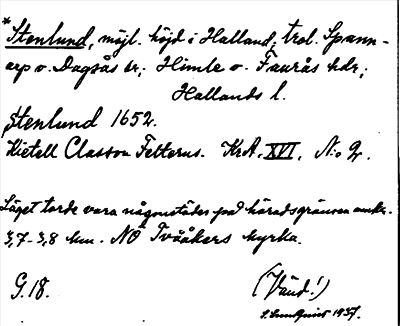 *Stenlund, möjl. höjd i Halland; trol. Spann-
arp o. Dagsås sr; Himle o. Faurås hdr;
Hallands l.
Stenlund 1652.
Kietell Classon Felterus. KrA, XVI, No 2.
Läget torde vara någonstädes på häradsgränsen omkr.
3,7-3,8 km. NO Tvååkers kyrka.
G. 18. (Vänd!)
S. Lundquist 1937.